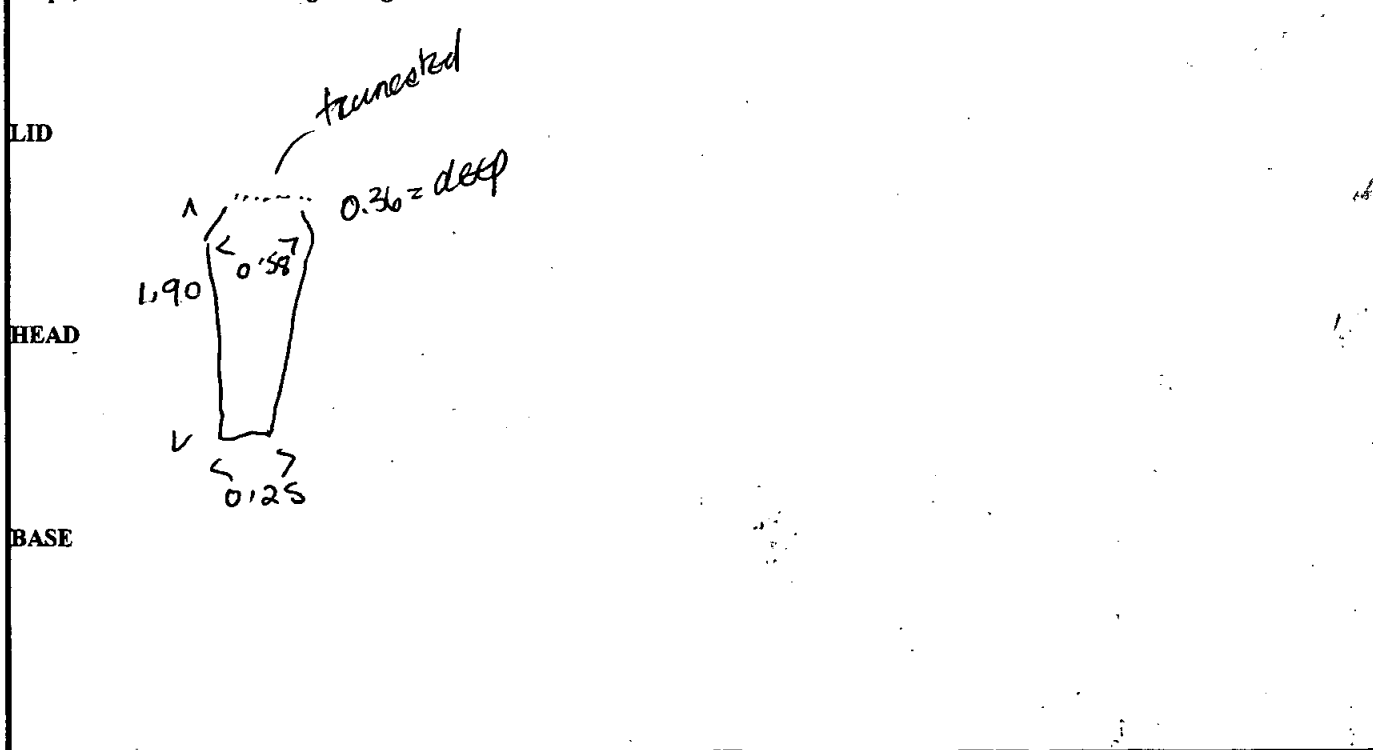 truncated
LID
0.36 = deep
< 0.58 >
1.90
HEAD
< 0.25 >
BASE